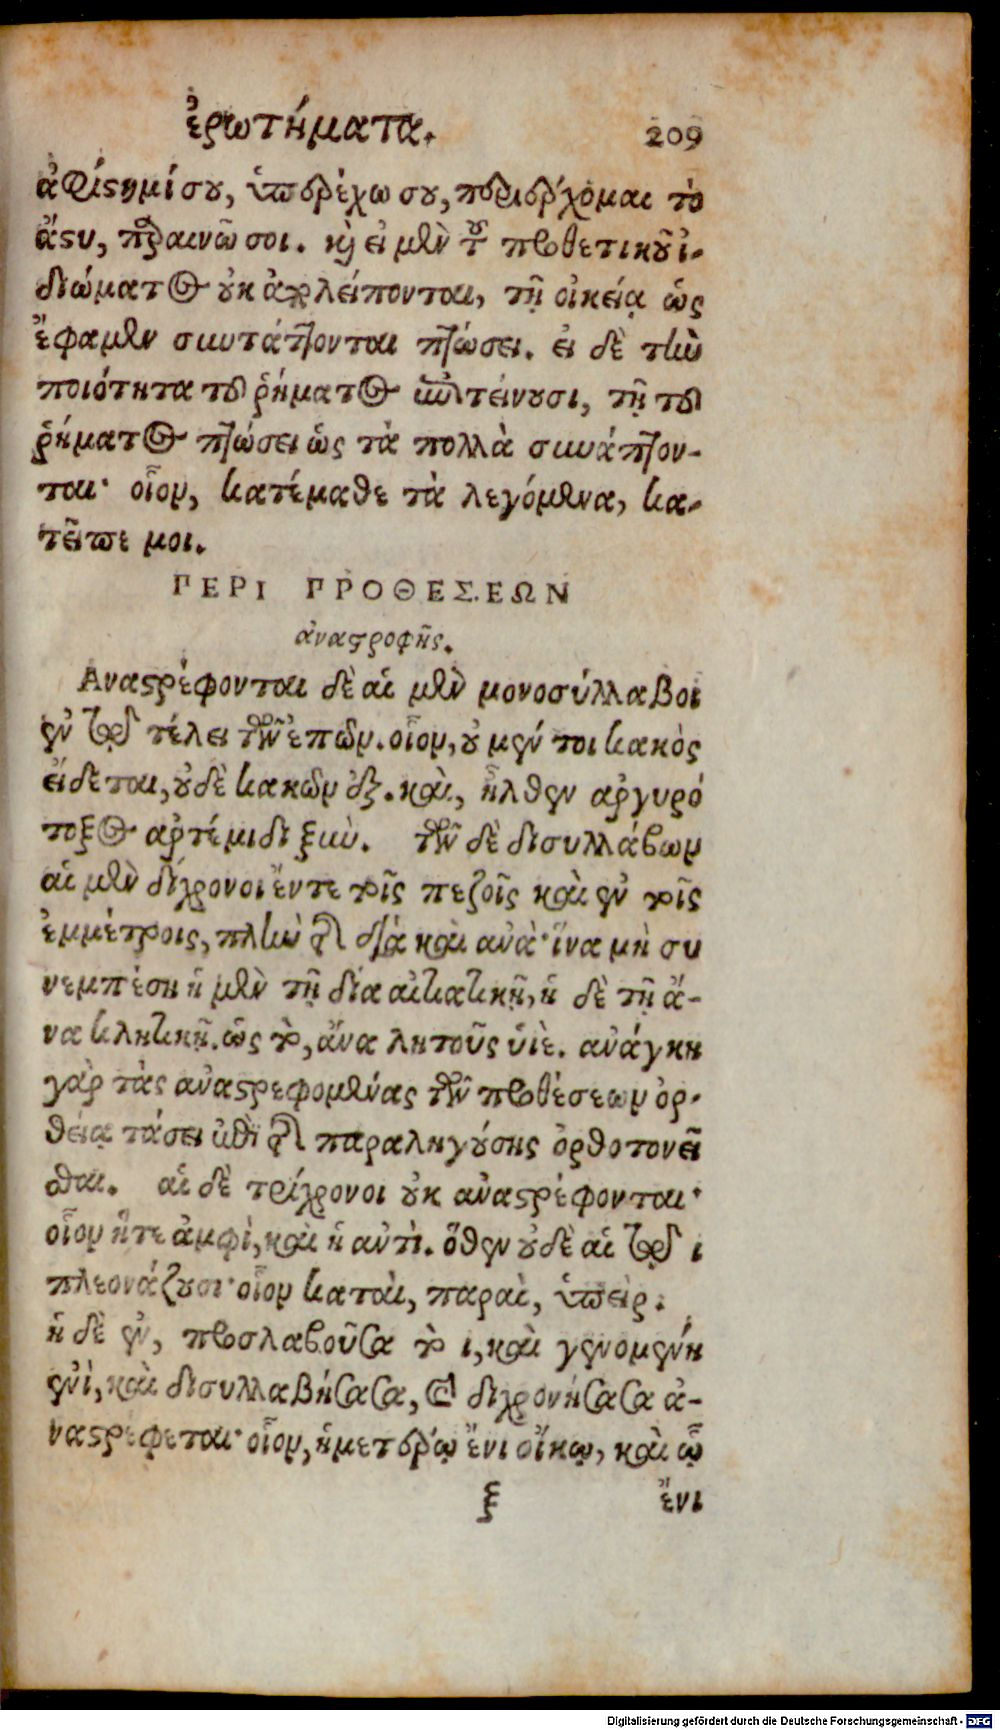 ἐρωτήματα. 209
ἀφίσημί σου, ὑπερέχω σου, περιέρχομαι τὸ
ἄστυ, παραινῶ σοι. καὶ εἰ μὲν τοῦ προθετικοῦ ἰ-
διώματος οὐκ ἀπολείπονται, τῇ οἰκείᾳ ὡς
ἔφαμεν συντάττονται πτώσει. εἰ δὲ τὴν
ποιότητα τοῦ ῥήματος ἐπιτείνουσι, τῇ τοῦ
ῥήματος πτώσει ὡς τὰ πολλὰ συνάπτον-
ται· οἷον, κατέμαθε τὰ λεγόμενα, κα-
τεῖπε μοι.
ΠΕΡΙ ΠΡΟΘΕΣΕΩΝ
ἀναστροφῆς.
Αναστρέφονται δὲ αἱ μὲν μονοσύλλαβοι
ἐν τῷ τέλει τῶν ἐπῶν. οἷον, οὐ μέν τοι κακὸς
εἴδεται, οὐδὲ κακῶν ἐξ. καὶ, ἦλθεν ἀργυρό
τοξος ἀρτέμιδι ξὺν. τῶν δὲ δισυλλάβων
αἱ μὲν δίχρονοι ἔν τε τοῖς πεζοῖς καὶ ἐν τοῖς
ἐμμέτροις, πλὴν τῆς διὰ καὶ ἀνὰ· ἵνα μὴ συ
νεμπέσῃ ἡ μὲν τῇ δία αἰτιατικῇ, ἡ δὲ τῇ ἄ-
να κλητικῇ. ὡς τὸ, ἄνα λητοῦς ὑιὲ. ἀνάγκη
γὰρ τὰς ἀναστρεφομένας τῶν προθέσεων ὀρ-
θείᾳ τάσει ἐπὶ τῆς παραληγούσης ὀρθοτονεῖ
σθαι. αἱ δὲ τρίχρονοι οὐκ ἀναστρέφονται·
οἷον ἥτε ἀμφὶ, καὶ ἡ ἀντὶ. ὅθεν οὐδὲ αἱ τῷ ι
πλεονάζουσι· οἷον καταὶ, παραὶ, ὑπεὶρ.
ἡ δὲ ἐν, προσλαβοῦσα τὸ ι, καὶ γενομένη
ἐνὶ, καὶ δισυλλαβήσασα, καὶ διχρονήσασα ἀ-
ναστρέφεται· οἷον, ἡμετέρῳ ἔνι οἴκῳ, καὶ ᾧ
ξ ἔνι
Digitalisierung gefördert durch die Deutsche Forschungsgemeinschaft - DFG